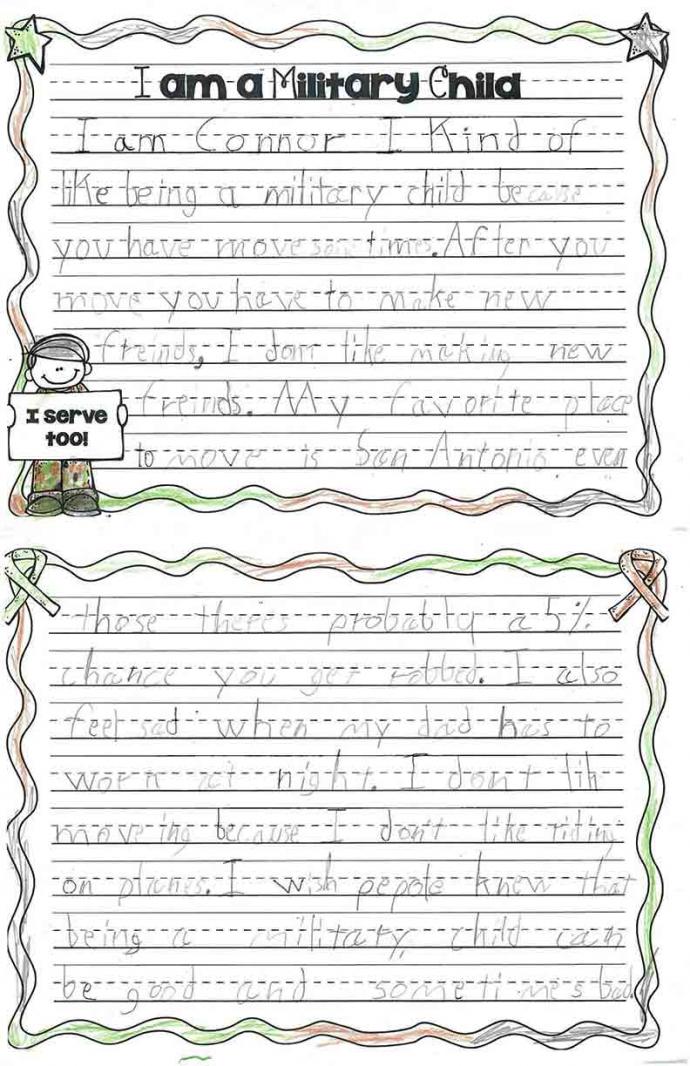 I am a Military Child
I am Connor I Kind of
like being a military child because
you have move some times. After you
move you have to make new
freinds, I dont like making new
freinds. My favorite place
I serve
too!
to move is San Antonio even
those theres probably a 5%
chance you get robbed. I also
feel sad when my dad has to
work at night. I dont lik
moveing because I don't like riding
on planes. I wish pepole knew that
being a military child can
be good and sometimes bad.